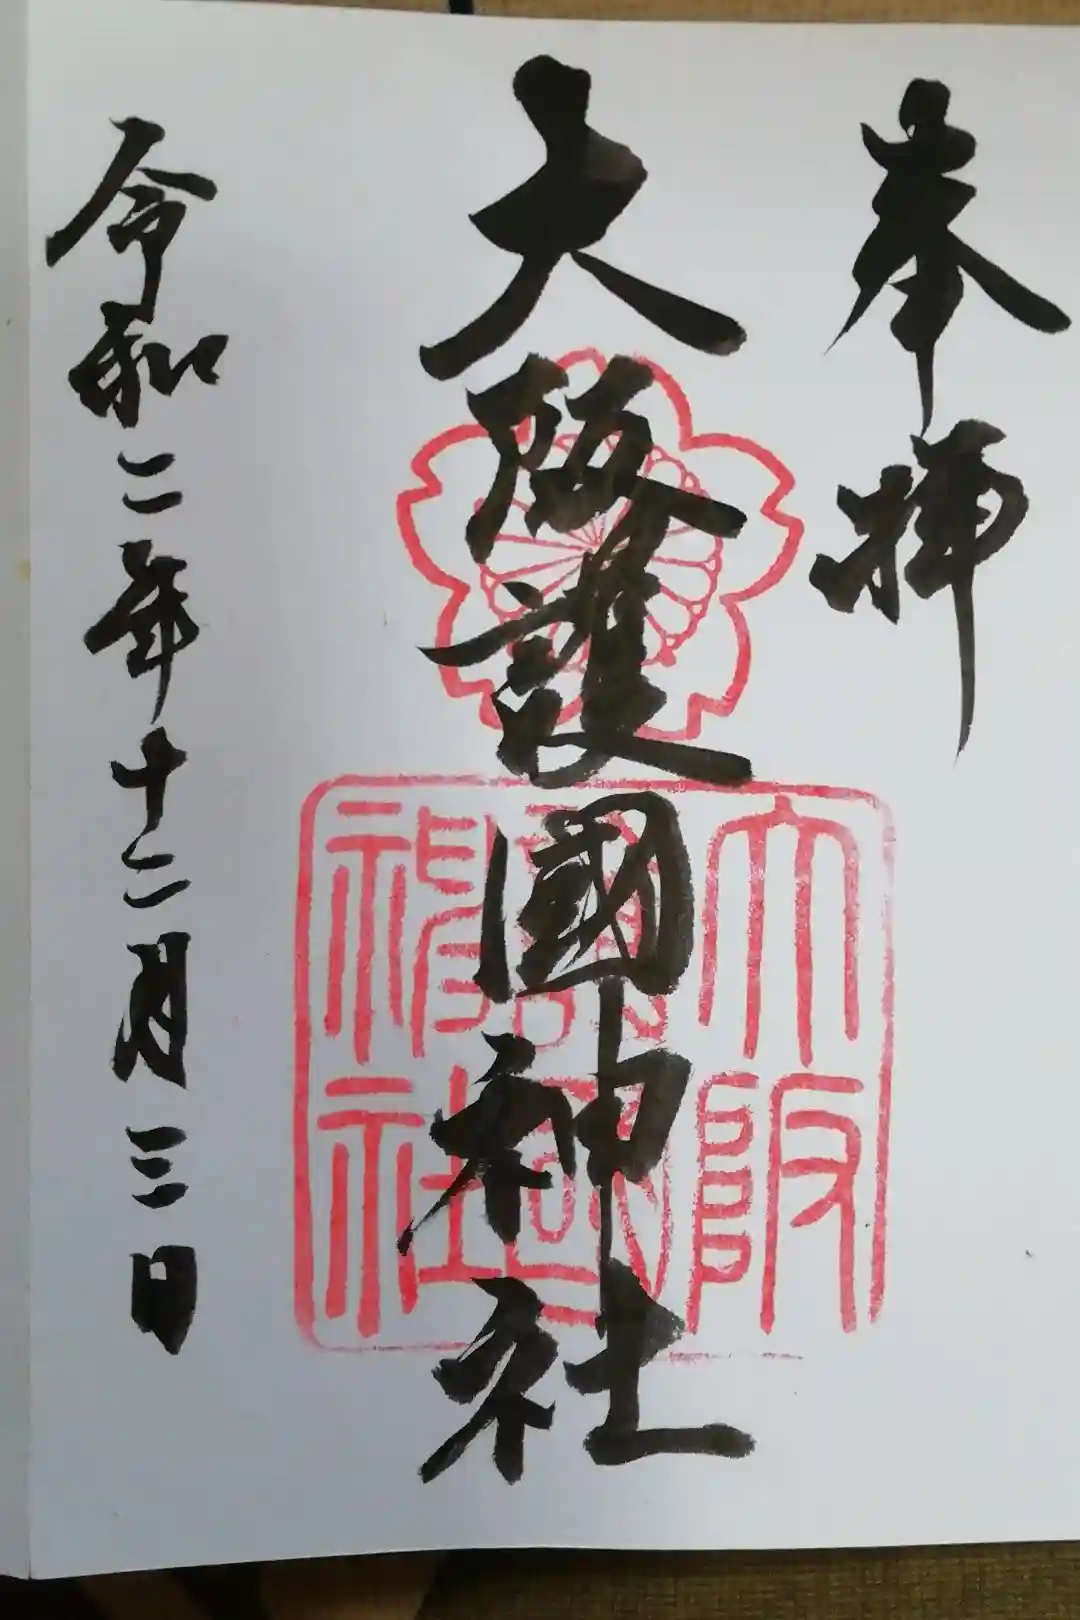 奉拝
大阪護國神社
大阪護國神社
令和二年十二月三日